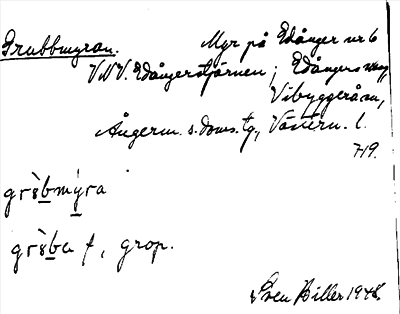 Grubbmyran. Myr på Edånger nr 6
VNV. Edångerstjärnen; Edångers
Vibyggerå sn,
Ångerm. s. doms. tg, Västern. l.
719.
grɤ̀bmýra
grɤ̀ba f, grop.
Sven Biller 1948.